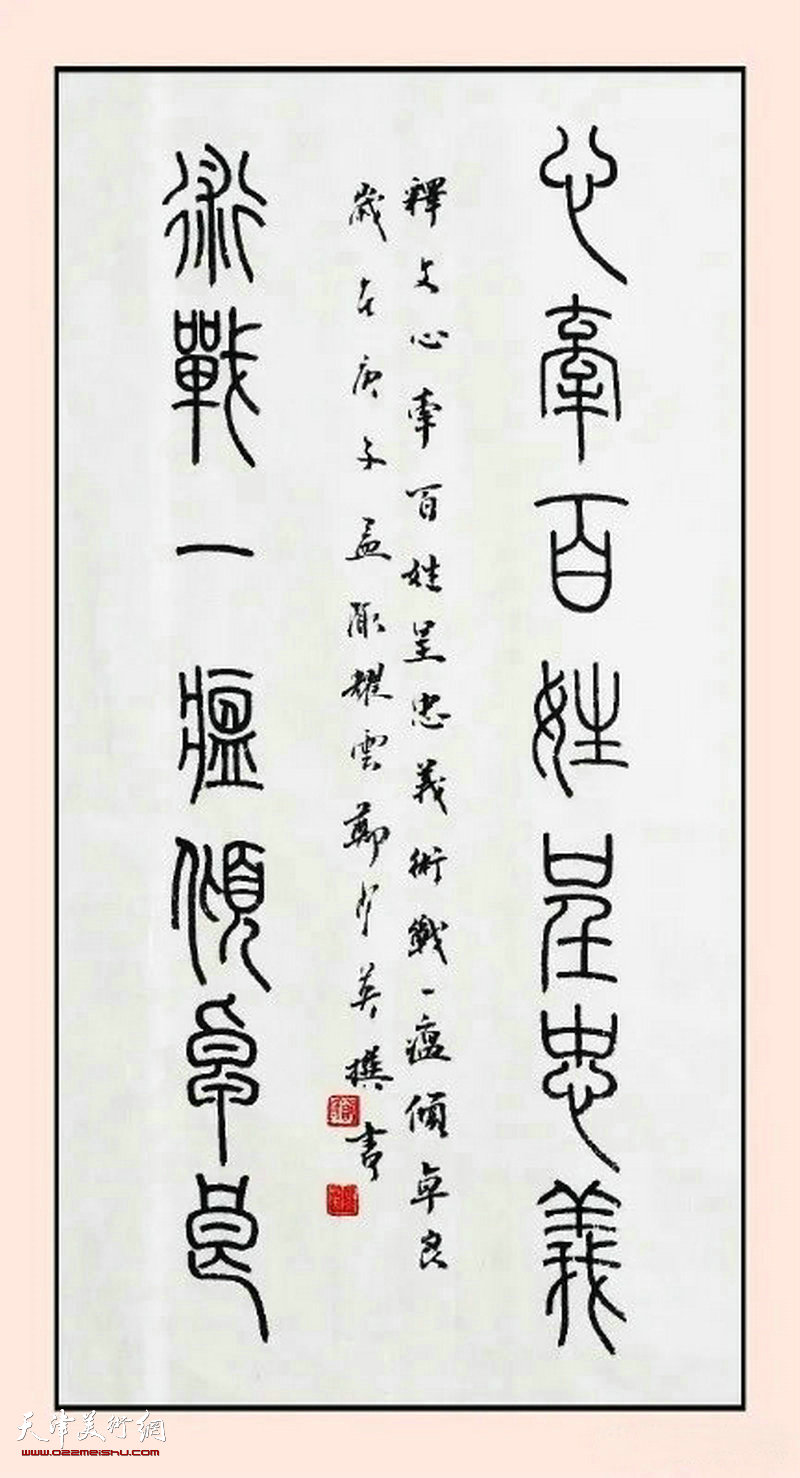 心牽百姓呈忠義
釋文心牽百姓呈忠義術戰一瘟傾卓良
歲在庚子孟陬耀雲鄭少英撰書
術戰一瘟傾卓良
天津美術網
www.022meishu.com